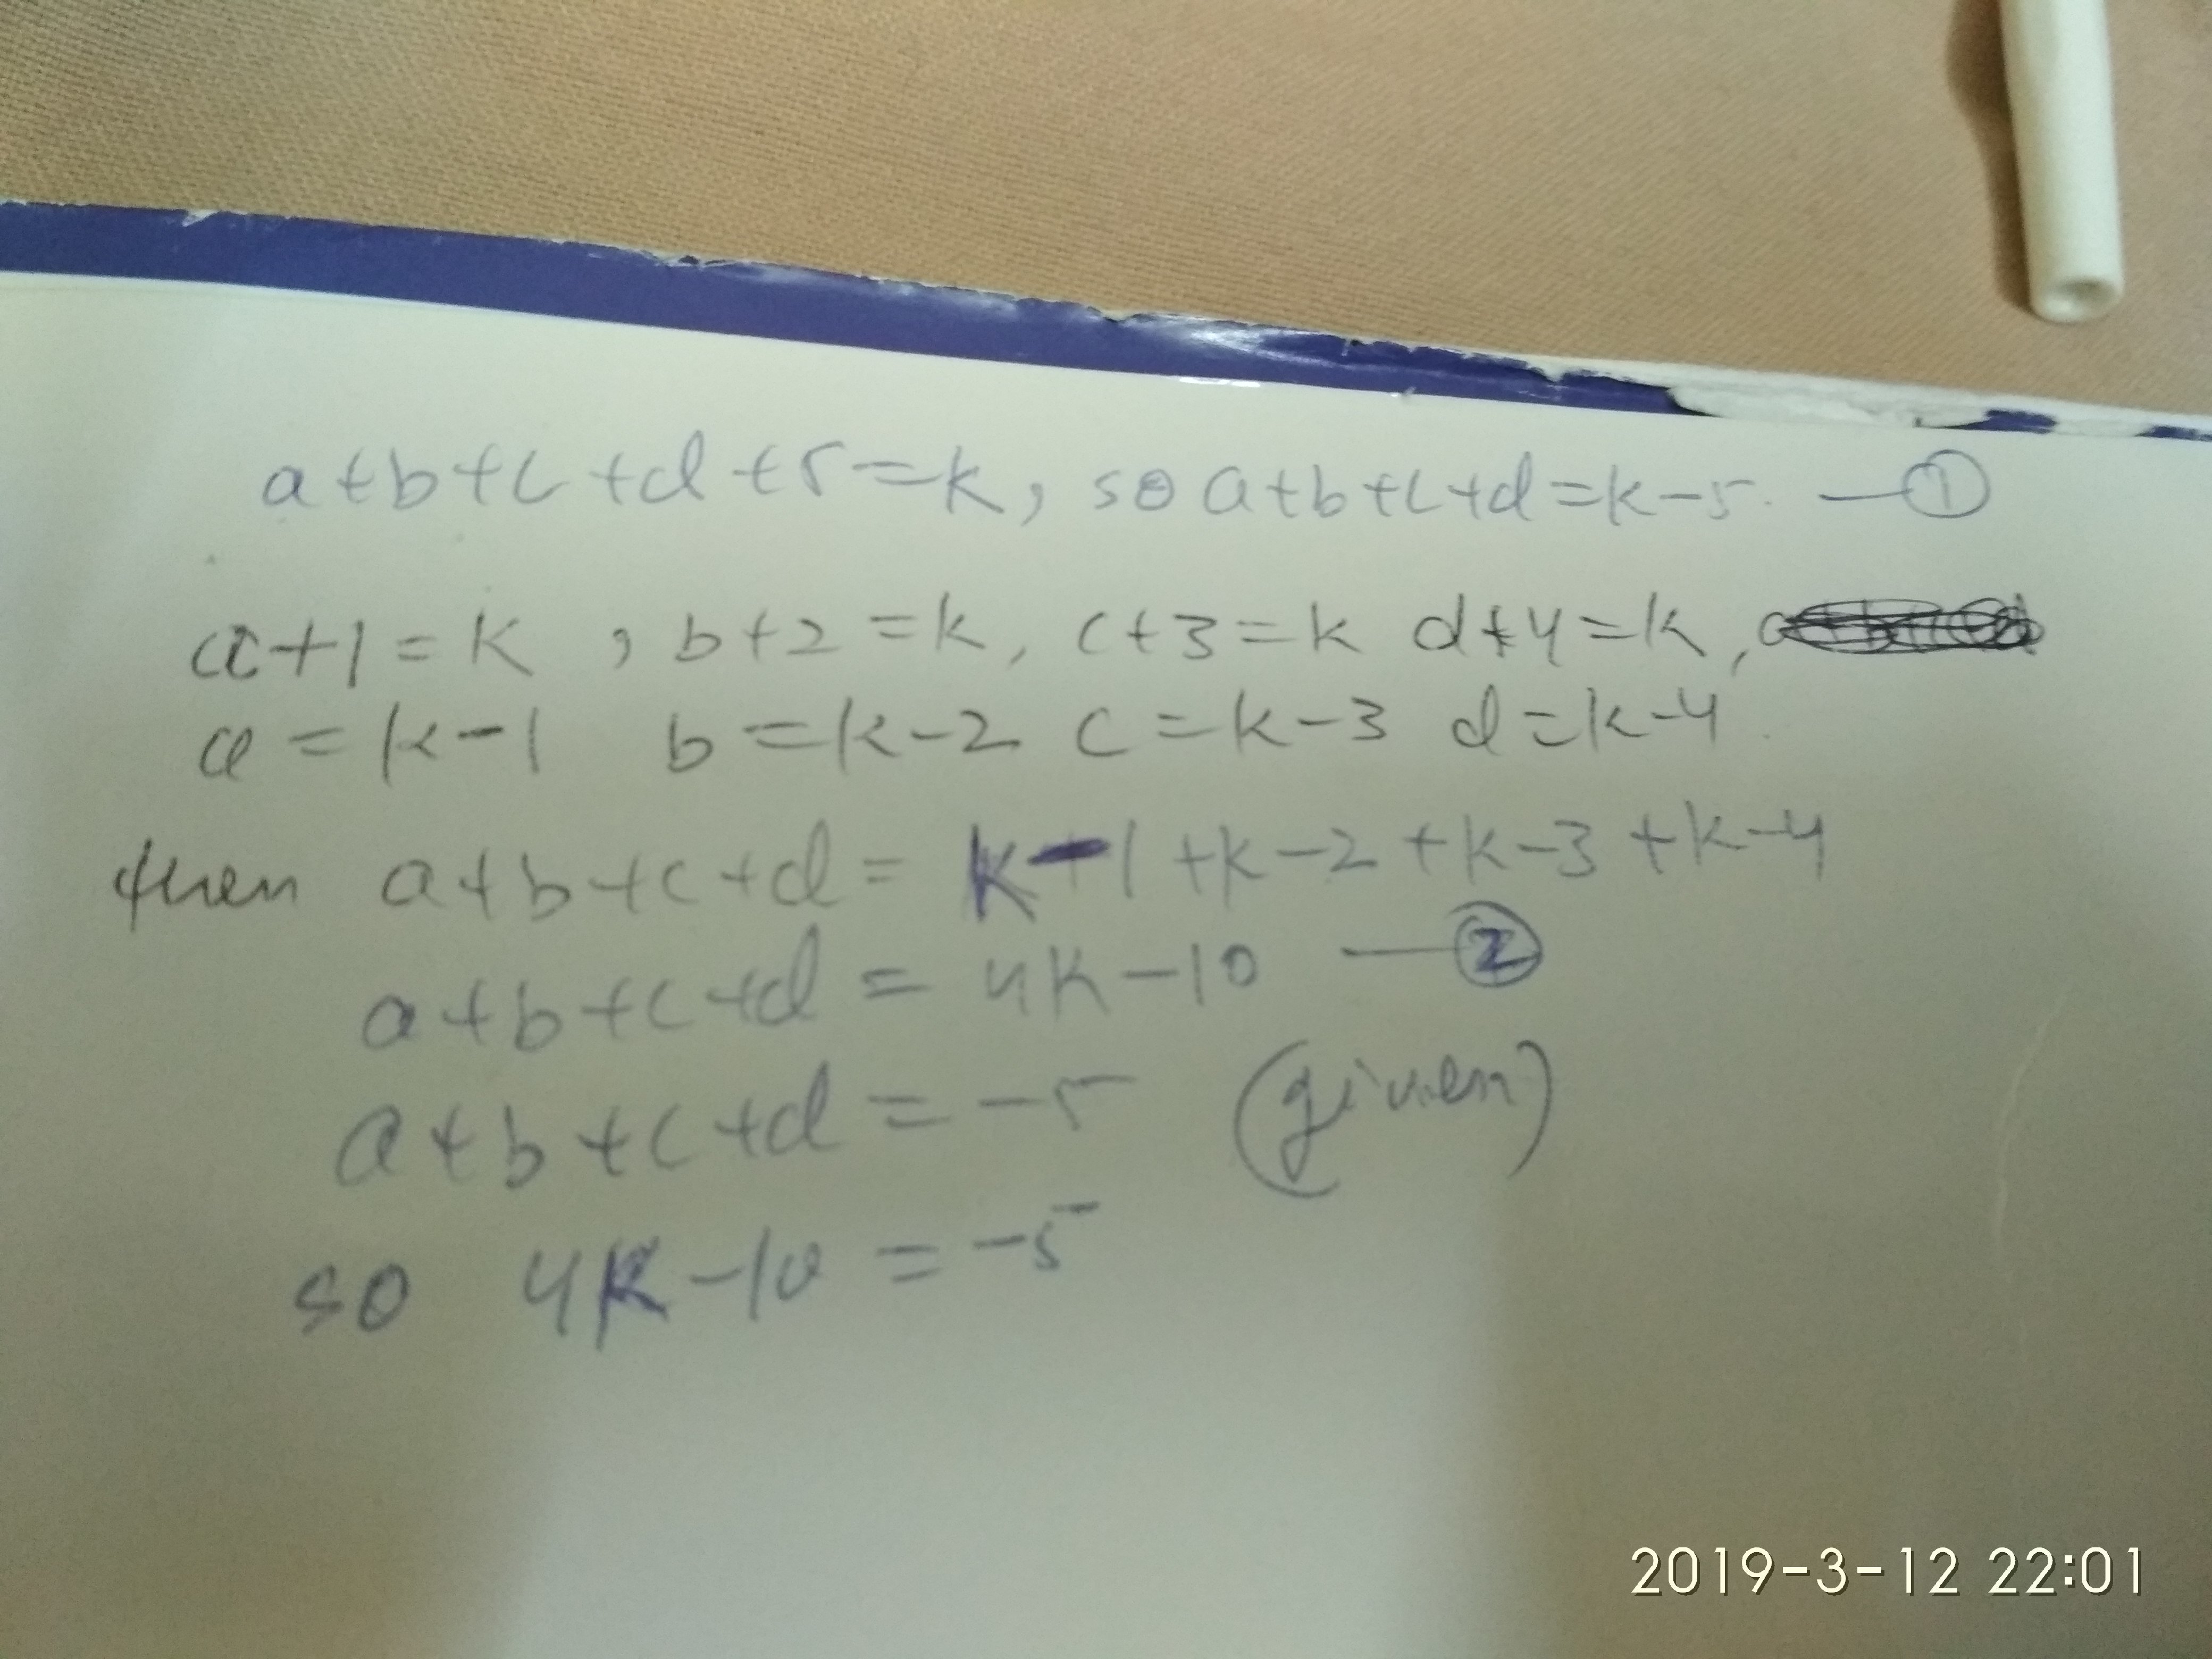 a+b+c+d+5=k, so a+b+c+d=k-5. —①
a+1=k, b+2=k, c+3=k d+4=k,
a=k-1 b=k-2 c=k-3 d=k-4.
then a+b+c+d= k-1+k-2+k-3+k-4
a+b+c+d = 4k-10 —②
a+b+c+d = -5 (given)
so 4k-10 = -5
2019-3-12 22:01